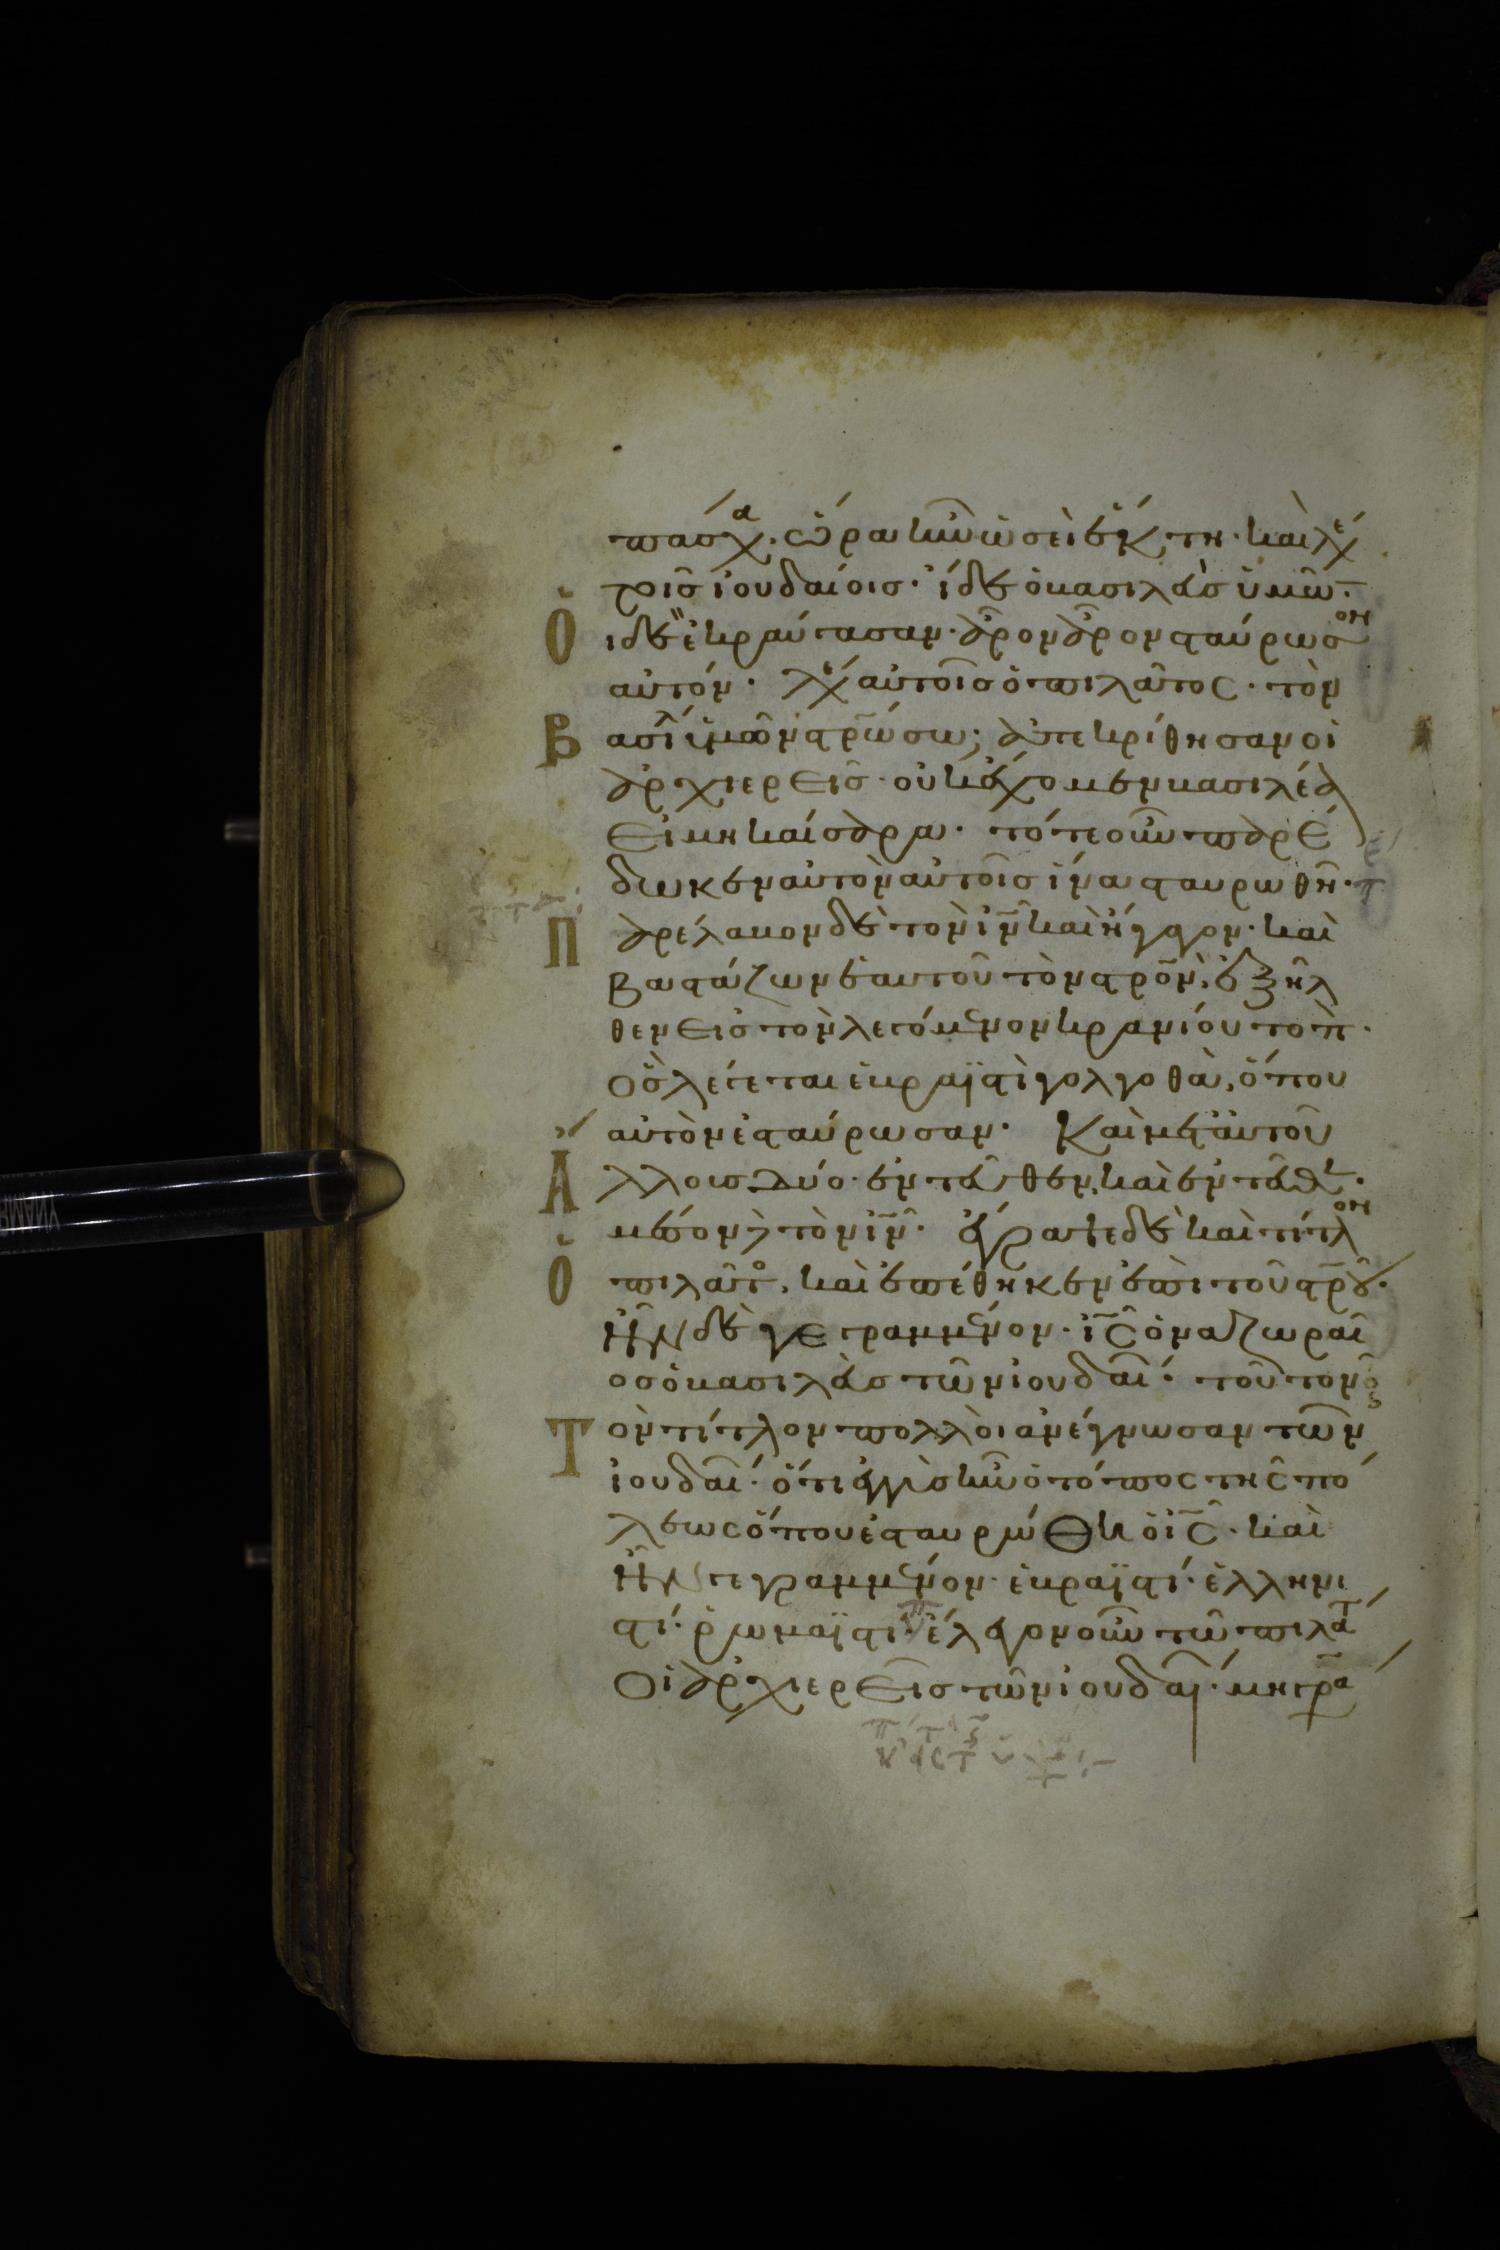 πάσχ(α). ὥρα ἦν ὡσεὶ ἕκτη. καὶ λέγ(ει)
τοῖς ἰουδαίοις. ἴδε ὁ βασιλεὺς ὑμῶν.
Ὁιδὲ ἐκραύγασαν. ἆρον ἆρον σταύρωσον
αὐτόν. λέγ(ει) αὐτοῖς ὁ πιλᾶτος. τὸν
Βασιλ(έα) ὑμῶν στρ̅ώσω; ἀπεκρίθησαν οἱ
ἀρχιερεῖς. οὐκ ἔχομεν βασιλέα
εἰ μὴ καίσαρα. τότε οὖν παρέ
δωκεν αὐτὸν αὐτοῖς ἵνα σταυρωθῆ.
Παρέλαβον δὲ τὸν ι̅ν̅ καὶ ἤγαγον. καὶ
βαστάζων ἑαυτοῦ τὸν στρ̅ον, ἐξῆλ
θεν εἰς τὸν λεγόμενον κρανίου τόπ.
ὃς λέγεται ἑβραϊστὶ γολγοθὰ, ὅπου
αὐτὸν ἐσταύρωσαν. Καὶ μετ' αὐτοῦ
Ἄλλους δύο. ἐντεῦθεν καὶ ἐντεῦθ.
μέσον δὲ τὸν ι̅ν̅. ἔγραψε δὲ καὶ τίτλον
Ὁ πιλᾶτο, καὶ ἐπέθηκεν ἐπὶ τοῦ στρ̅ου.
ἦν δὲ γεγραμμένον. ι̅ς̅ ὁ ναζωραῖ
ος ὁ βασιλεὺς τῶν ἰουδαί. τοῦτον ὂ
Τὸν τίτλον πολλοὶ ἀνέγνωσαν τῶν
ἰουδαί. ὅτι ἐγγὺς ἦν ὁ τόπος τῆς πό
λεως ὅπου ἐσταυρώθη ὁ ι̅ς̅. καὶ
ἦν γεγραμμένον. ἑβραϊστί. ἑλληνι
στί. ῥωμαϊστί. ἔλεγον οὖν τῶ πιλάτ
οἱ ἀρχιερεῖς τῶν ἰουδαί. μὴ γρά